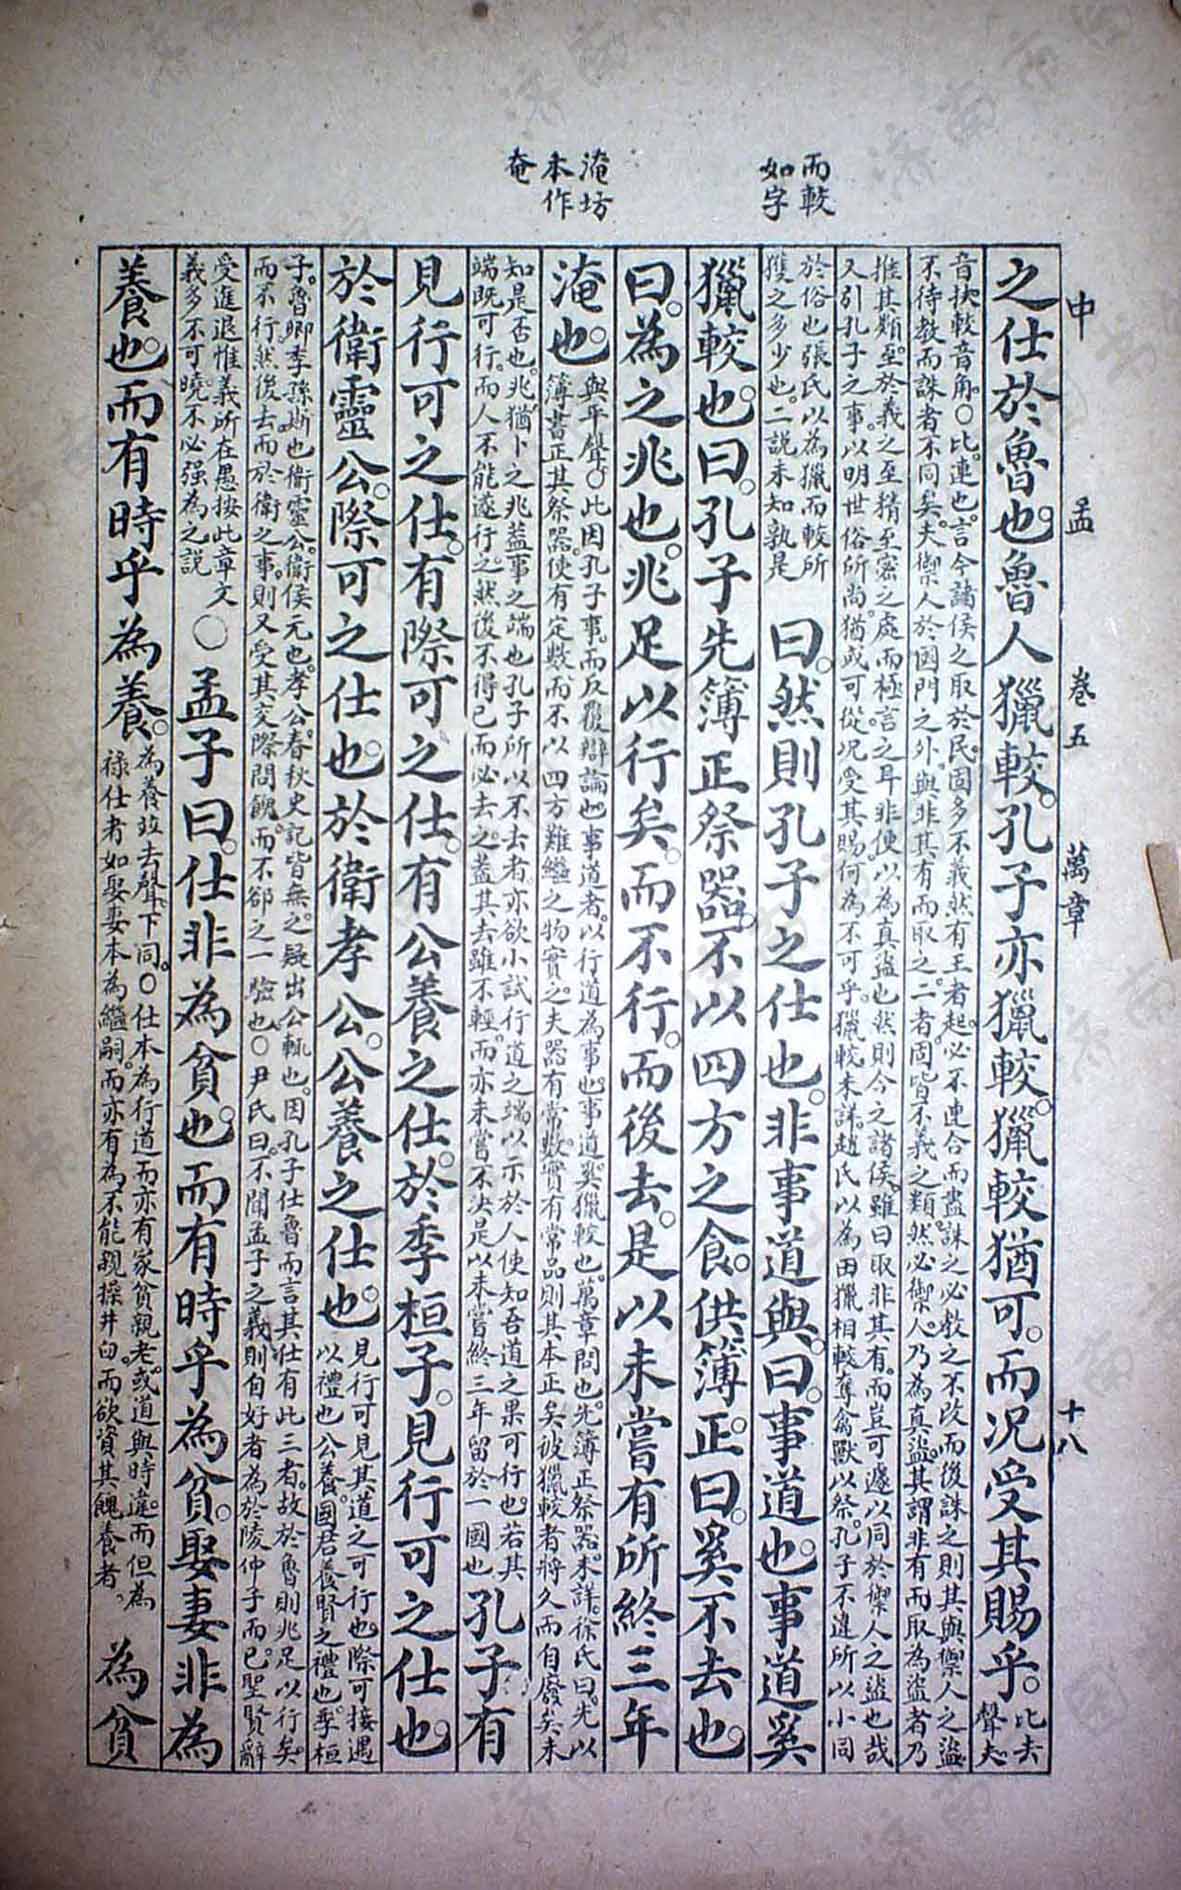 而較
如字
淹坊
本作
奄
中　孟　卷五　萬章　十八
之仕於魯也。魯人獵較。孔子亦獵較。獵較猶可。而況受其賜乎。比去
聲夫
音扶較音角。〇比連也。言今諸侯之取於民。固多不義。然有王者起。必不連合而盡誅之。必教之不改而後誅之。則其與禦人之盜
不待教而誅者。不同矣。夫禦人於國門之外。與非其有而取之。二者固皆不義之類。然必禦人。乃為真盜。其謂非有而取為盜者乃
推其類。至於義之至精至密之處。而極言之耳。非便以為真盜也。然則今之諸侯。雖曰取非其有。而豈可遽以同於禦人之盜也哉
又引孔子之事。以明世俗所尚。猶或可從。況受其賜。何為不可乎。獵較未詳。趙氏以為田獵相較奪禽獸以祭。孔子不違。所以小同
於俗也。張氏以為獵而較所
獲之多少也。二說未知孰是
曰。然則孔子之仕也。非事道與。曰。事道也。事道奚
獵較也。曰。孔子先簿正祭器。不以四方之食。供簿正。曰。奚不去也。
曰。為之兆也。兆足以行矣。而不行。而後去。是以未嘗有所終三年
淹也。與平聲〇此因孔子事。而反覆辯論也。事道者。以行道為事也。事道奚獵較也。萬章問也。先簿正祭器。未詳。徐氏曰。先以
簿書正其祭器。使有定數。而不以四方難繼之物實之。夫器有常數。實有常品。則其本正矣。彼獵較者將久而自廢矣。未
知是否也。兆猶卜之兆。蓋事之端也。孔子所以不去者。亦欲小試行道之端。以示於人。使知吾道之果可行也。若其
端既可行。而人不能遂行之。然後不得已而必去之。蓋其去雖不輕。而亦未嘗不決。是以未嘗終三年留於一國也
孔子有
見行可之仕。有際可之仕。有公養之仕。於季桓子。見行可之仕也。
於衛靈公。際可之仕也。於衛孝公。公養之仕也。見行可。見其道之可行也。際可。接遇
以禮也。公養。國君養賢之禮也。季桓
子。魯卿季孫斯也。衛靈公。衛侯元也。孝公。春秋史記皆無之。疑出公輒也。因孔子仕魯。而言其仕有此三者。故於魯則兆足以行矣。
而不行然後去。而於衛之事。則又受其交際問餽。而不卻之一驗也。〇尹氏曰。不聞孟子之義。則自好者為於陵仲子而已。聖賢辭
受進退惟義所在。愚按此章文
義多不可曉。不必強為之說
〇孟子曰。仕非為貧也。而有時乎為貧。娶妻非為
養也。而有時乎為養。為養竝去聲下同。〇仕本為行道。而亦有家貧親老。或道與時違。而但為
祿仕者。如娶妻本為繼嗣。而亦有為不能親操井臼。而欲資其餽養者。
為貧